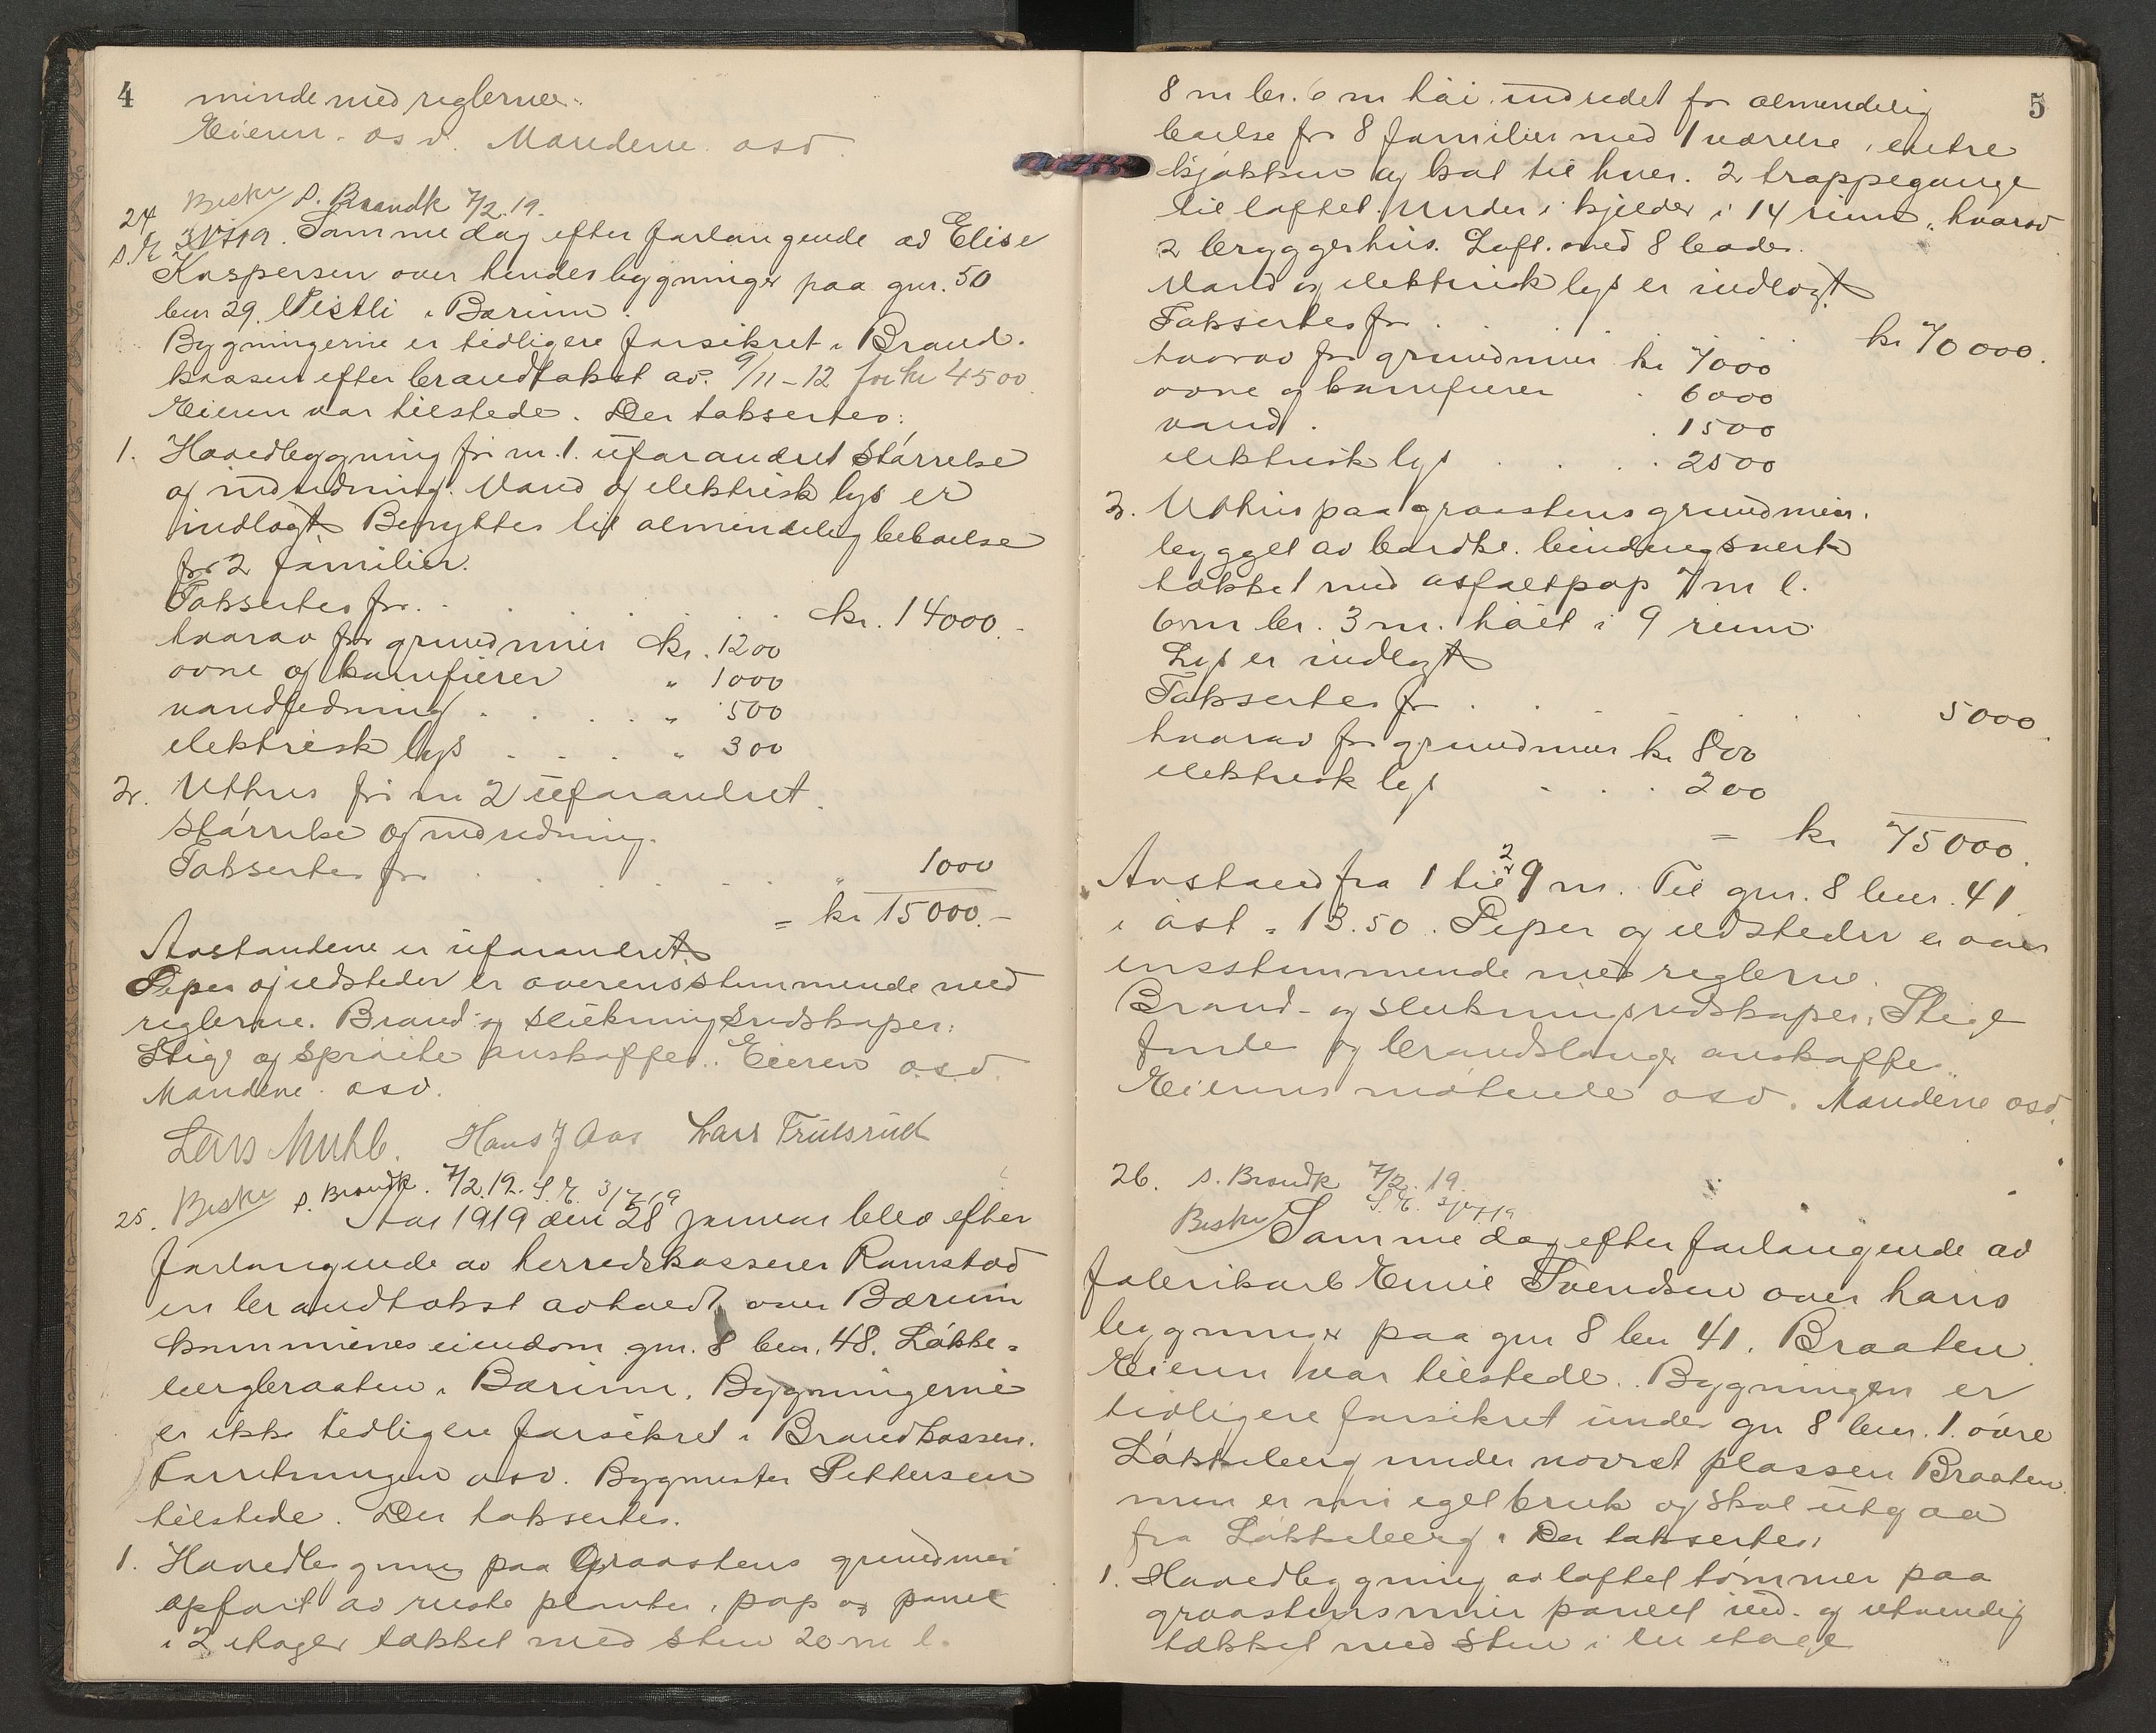 4
minde med reglerne.
Eieren osv. Mændene osv.
Besk. s. Brandk 7/2.19.
24
S.E. 3/7 19. Samme dag efter forlangende av Elise
Kaspersen over hendes bygninger paa gnr. 50
bnr 29. Vestli i Bærum.
Bygningerne er tidligere forsikret i Brand-
kassen efter brandtakst av 9/11-12 for kr 4500
Eieren var tilstede. Der taksertes:
1. Hovedbygning fri nr. 1. uforandret størrelse
og indredning. Vand og elektrisk lys er
indlagt. Benyttes til almindelig beboelse
for 2 familier.
Taksertes for . . . . . kr. 14000.-
hvorav for grundmur kr. 1200
ovne og komfurer " 1000
vandledning . . . " 500
elektrisk lys . . . " 300
2. Uthus fri nr 2 uforandret
størrelse og indredning.
Taksertes for . . . . . " 1000
= kr 15000.-
Avstandene er uforandret
Piper og ildsteder er overensstemmende med
reglerne. Brand- og slukningsredskaper:
Stige og sprøite anskaffes. Eieren osv.
Mændene osv.
Lars Muhle. Hans J Aas Lars Trulsrud
Besk. s. Brandk. 7/2.19. S.E. 3/7 19
25. Aar 1919 den 28 januar blev efter
forlangende av herredskasserer Ramstad
en brandtakst avholdt over Bærum
kommunes eiendom gnr. 8 bnr. 48. Løkke-
bergbraaten i Bærum. Bygningerne
er ikke tidligere forsikret i Brandkassen.
Forretningen osv. Bygmester Pettersen
tilstede. Der taksertes.
1. Hovedbygning paa Graastens grundmur
opført av reiste planker, pap og panel
i 2 etager tækket med sten 20 m l.
5
8 m br. 6 m høi indredet for almendelig
boelse for 8 familier med 1 værelse, entre
kjøkken og bad til hver. 2 trappegange
til loftet. Under i kjelder i 14 rum, hvorav
2 bryggerhus. Loft med 8 boder.
Vand og elektrisk lys er indlagt
Taksertes for . . . . . kr 70000.
hvorav for grundmur kr 7000
ovne og komfurer . 6000
vand . . 1500
elektrisk lys . . . 2500
2. Uthus paa graastens grundmur.
bygget av bordkl. bindingsverk
tækket med asfaltpap 7 m l.
6 m br. 3 m. høit i 9 rum
Lys er indlagt
Taksertes for . . . . . 5000.
hvorav for grundmur kr 800
elektrisk lys . . . 200
= kr 75000.
Avstand fra 1 til 2 9 m. Til gnr. 8 bnr. 41
i øst = 13.50. Piper og ildsteder er over
ensstemmende med reglerne.
Brand- og slukningsredskaper, Stige
findes og brandslange anskaffes.
Eierens møtende osv. Mændene osv.
26. s. Brandk 7/2.19.
S.E. 3/7 19
Besk. Samme dag efter forlangende av
fabrikarb Emil Svendsen over hans
bygninger paa gnr 8 bnr 41. Braaten.
Eieren var tilstede. Bygningen er
tidligere forsikret under gnr 8 bnr. 1. øvre
Løkkeberg under navnet plassen Braaten
men er nu eget bruk og skal utgaa
fra Løkkeberg. Der taksertes:
1. Hovedbygning av loftet tømmer paa
graastensmur panelt ind- og utvendig
tækket med sten i en etage